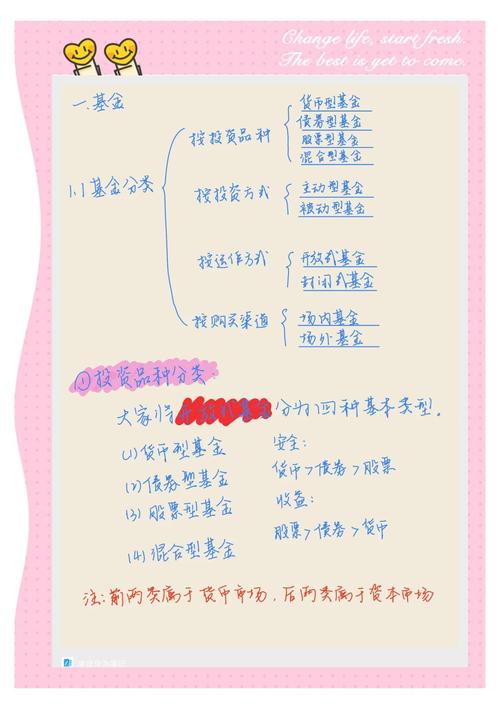 Change life, start fresh.
The best is yet to come.
一.基金
1.1基金分类
按投资品种
货币型基金
债券型基金
股票型基金
混合型基金
按投资方式
主动型基金
被动型基金
按运作方式
开放式基金
封闭式基金
按购买渠道
场内基金
场外基金
①投资品种分类:
大家将开放式基金分为四种基本类型。
(1)货币型基金
(2)债券型基金
(3)股票型基金
(4)混合型基金
安全:
货币>债券>股票
收益:
股票>债券>货币
注:前两类属于货币市场,后两类属于资本市场